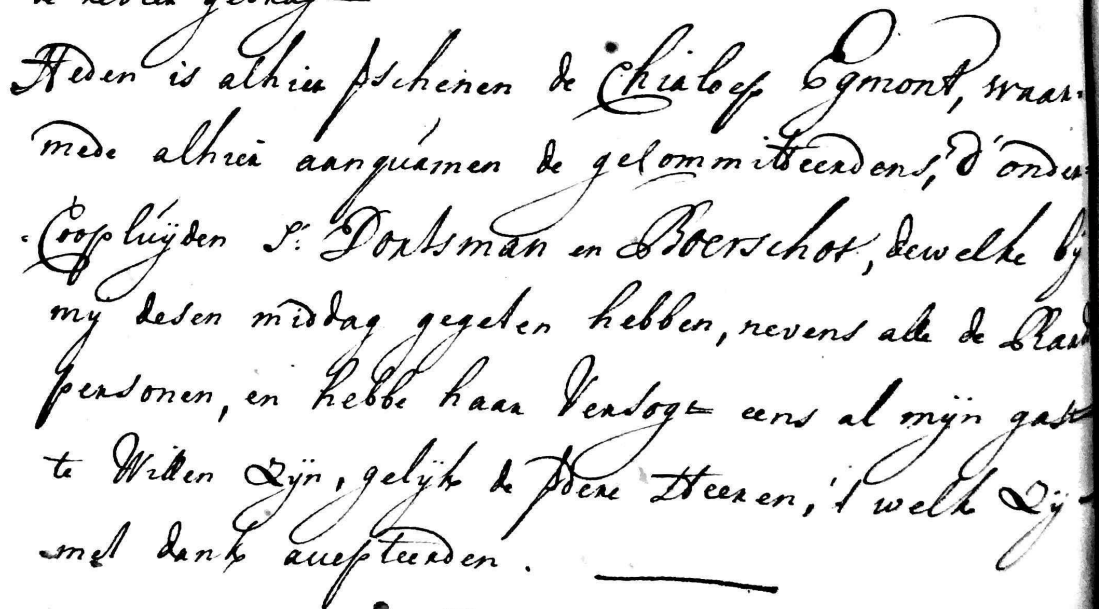 Heden is alhier pschenen de Chialoep Egmont, waar-
mede alhier aanquámen de gecommitteerdens, d'onder-
Cooplúÿden Sr. Dortsman en Boerschot, dewelke bÿ
my desen middag gegeten hebben, nevens alle de Raad
personen, en hebbe haar Versogt eens al mÿn gast
te Willen Zÿn, gelÿk de pdere Heeren, 't welk Zÿ
met dank accepteerden.